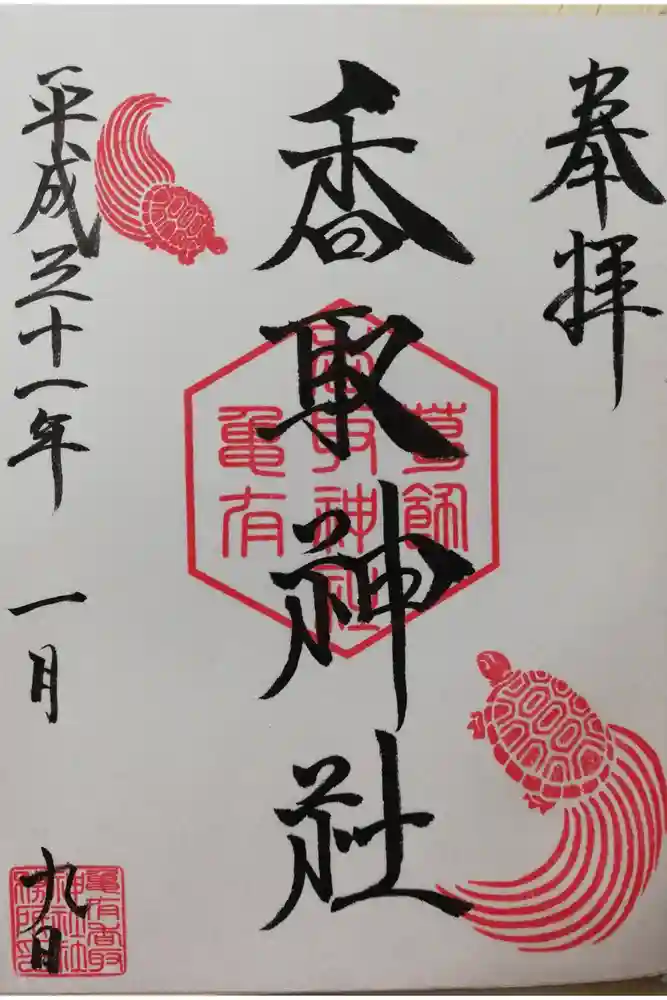 奉拝
香取神社
葛飾
香取神社
亀有
平成三十一年 一月 九日
亀有香取
神社社